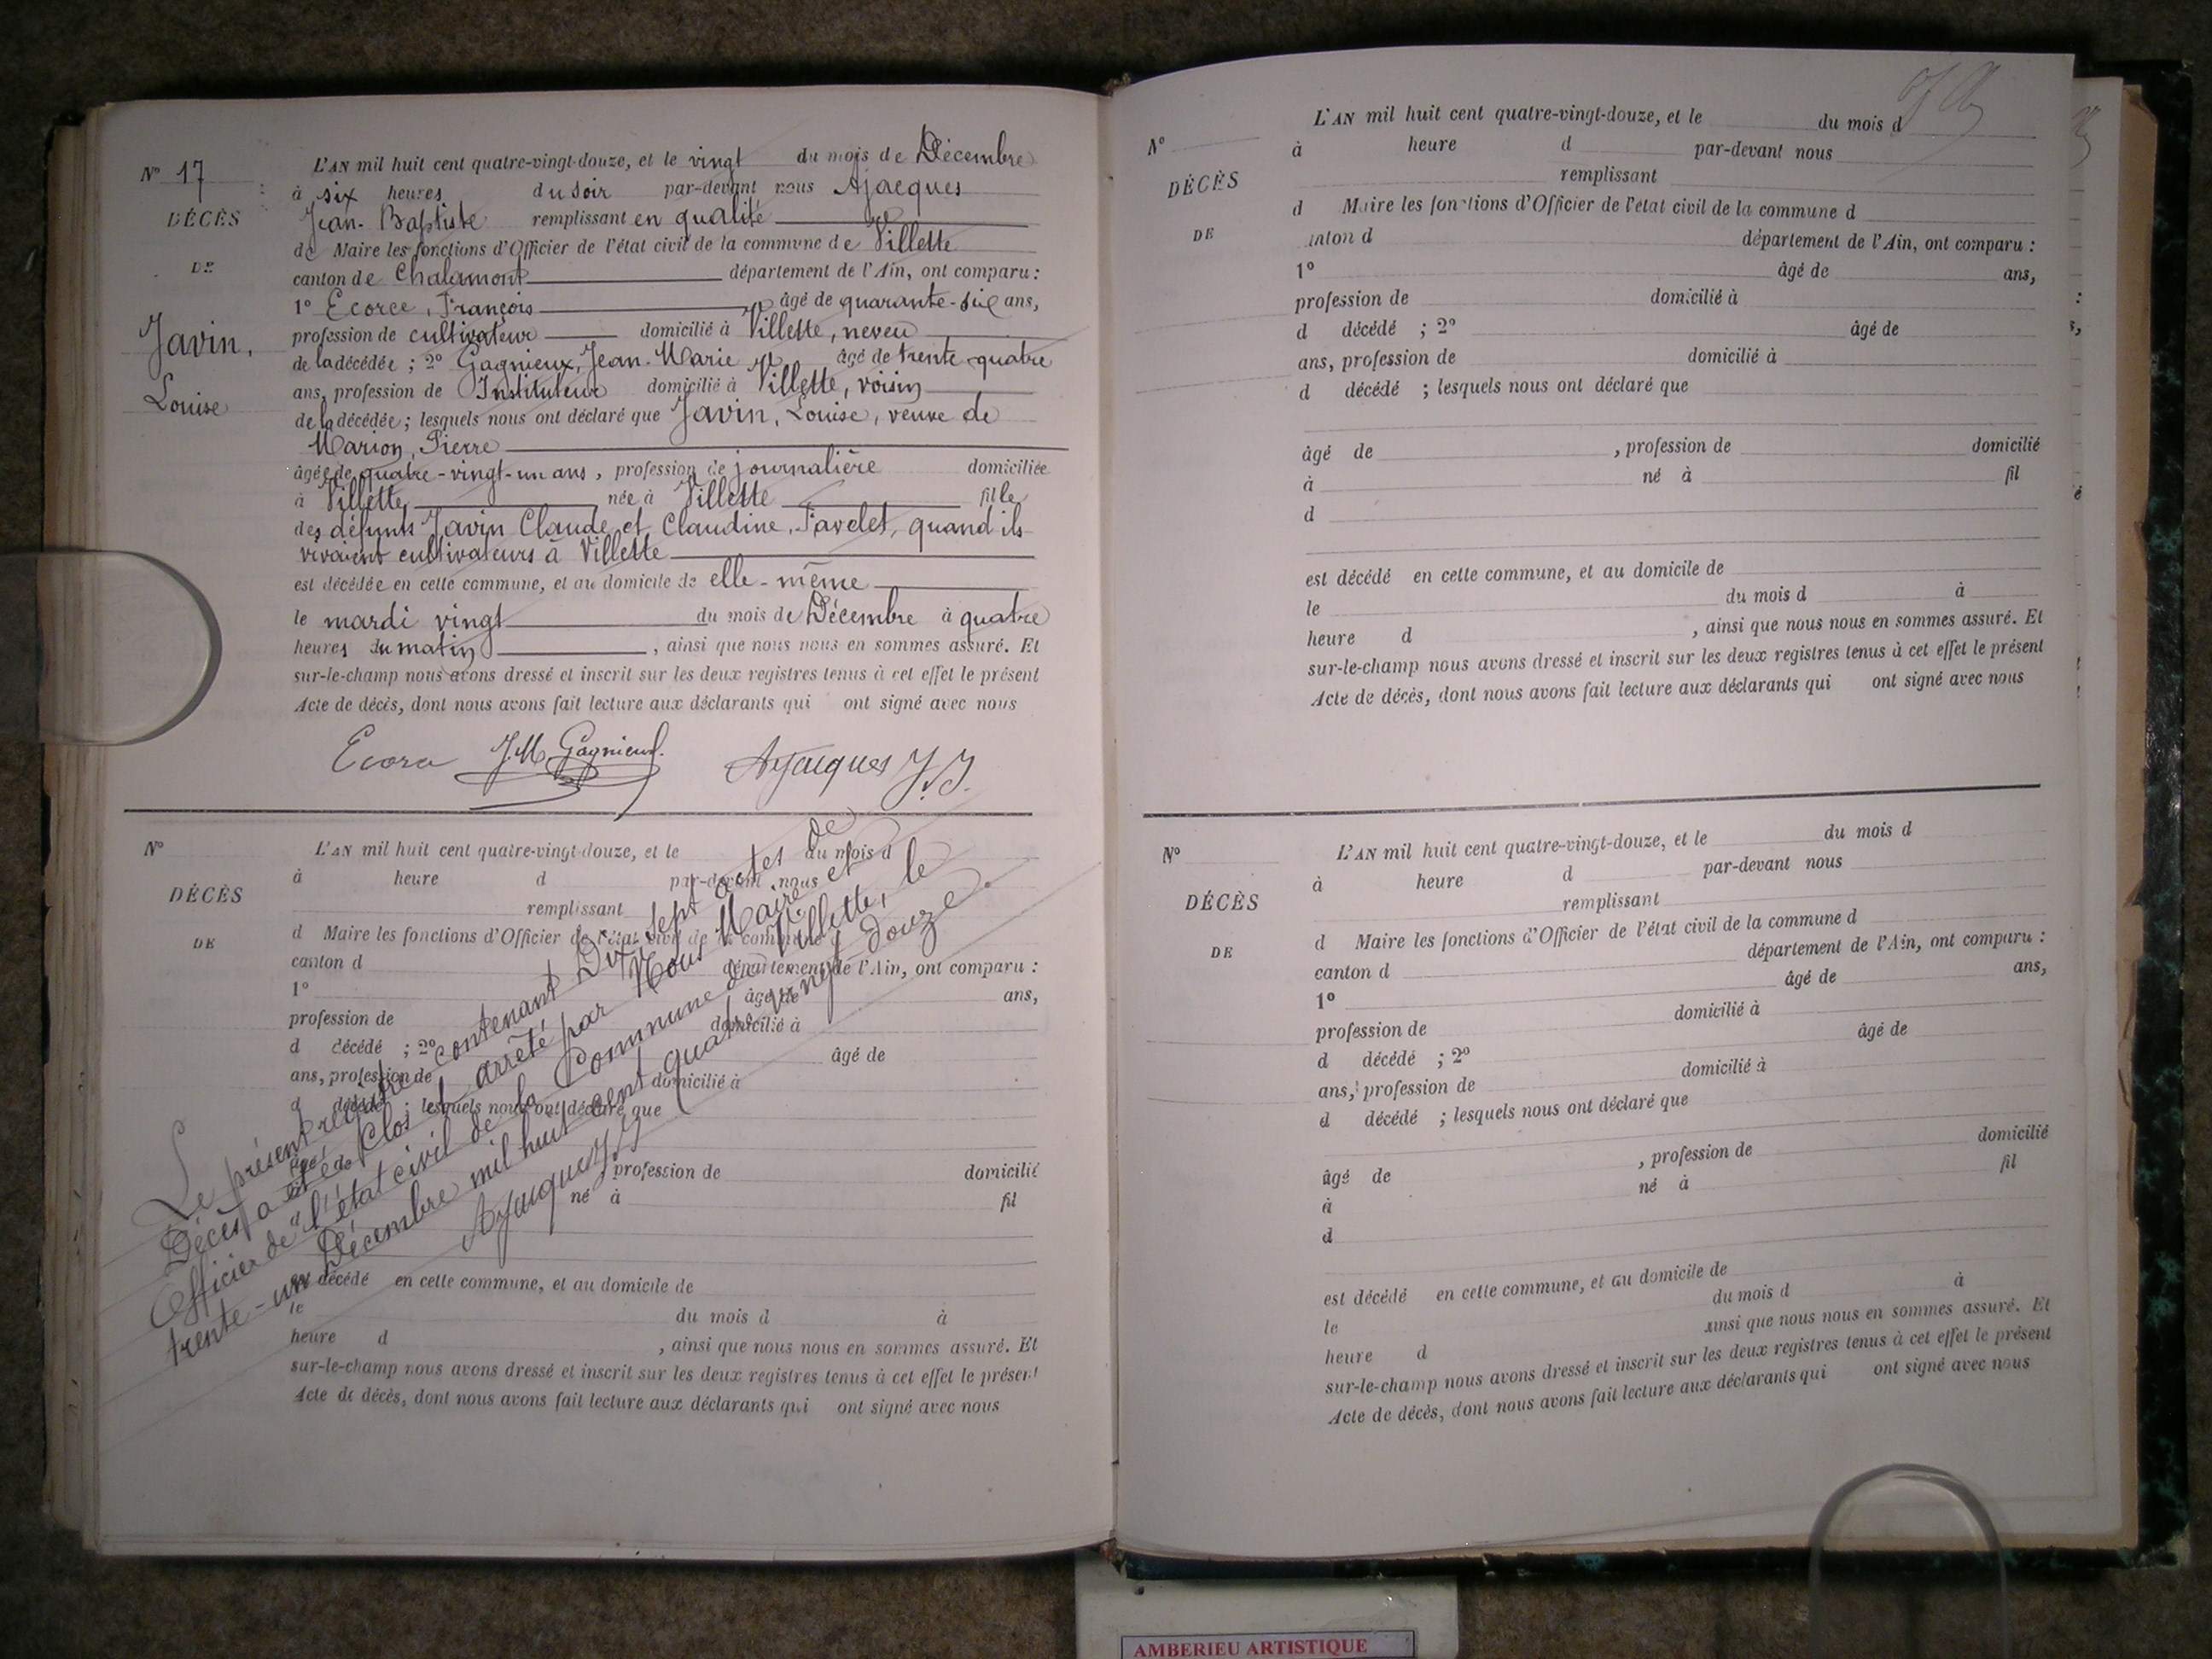 N° 17
DÉCÈS
DE
Javin,
Louise
L'AN mil huit cent quatre-vingt-douze, et le vingt du mois de Décembre
à six heures du soir par-devant nous Ajacques
Jean-Baptiste remplissant en qualité
de Maire les fonctions d'Officier de l'état civil de la commune de Villette
canton de Chalamont département de l'Ain, ont comparu :
1° Ecorce, François âgé de quarante-six ans,
profession de cultivateur domicilié à Villette, neveu
de la décédée ; 2° Gagnieux, Jean-Marie âgé de trente-quatre
ans, profession de Instituteur domicilié à Villette, voisin
de la décédée ; lesquels nous ont déclaré que Javin, Louise, veuve de
Marion, Pierre
âgée de quatre-vingt-un ans, profession de journalière domiciliée
à Villette née à Villette fille
des défunts Javin Claude et Claudine Favelet, quand ils
vivaient cultivateurs à Villette
est décédée en cette commune, et au domicile de elle-même
le mardi vingt du mois de Décembre à quatre
heures du matin, ainsi que nous nous en sommes assuré. Et
sur-le-champ nous avons dressé et inscrit sur les deux registres tenus à cet effet le présent
Acte de décès, dont nous avons fait lecture aux déclarants qui ont signé avec nous
Ecorce J.M Gagnieux. Ajacques J.B.
N°
DÉCÈS
DE
L'AN mil huit cent quatre-vingt-douze, et le du mois d
à heure d par-devant nous
remplissant
d Maire les fonctions d'Officier de l'état civil de la commune
canton d département de l'Ain, ont comparu :
1° âgé de ans,
profession de domicilié à
d décédé ; 2° âgé de
ans, profession de domicilié à
d décédé ; lesquels nous ont déclaré que
âgé de , profession de domicilié
né à fil
d
est décédé en cette commune, et au domicile de
le du mois d à
heure d , ainsi que nous nous en sommes assuré. Et
sur-le-champ nous avons dressé et inscrit sur les deux registres tenus à cet effet le présent
Acte de décès, dont nous avons fait lecture aux déclarants qui ont signé avec nous
Le présent registre contenant Dix-sept actes de
Décès a été Clos et arrêté par Nous Maire et
Officier de l'état civil de la Commune de Villette, le
trente-un Décembre mil huit cent quatre-vingt douze.
Ajacques J.B
L'AN mil huit cent quatre-vingt-douze, et le du mois d
N° à heure d par-devant nous
DÉCÈS
DE
remplissant
d Maire les fonctions d'Officier de l'état civil de la commune d
anton d département de l'Ain, ont comparu :
1° âgé de ans,
profession de domicilié à
d décédé ; 2° âgé de
ans, profession de domicilié à
d décédé ; lesquels nous ont déclaré que
âgé de , profession de domicilié
à né à fil
d
est décédé en cette commune, et au domicile de
le du mois d à
heure d , ainsi que nous nous en sommes assuré. Et
sur-le-champ nous avons dressé et inscrit sur les deux registres tenus à cet effet le présent
Acte de décès, dont nous avons fait lecture aux déclarants qui ont signé avec nous
N°
DÉCÈS
DE
L'AN mil huit cent quatre-vingt-douze, et le du mois d
à heure d par-devant nous
remplissant
d Maire les fonctions d'Officier de l'état civil de la commune d
canton d département de l'Ain, ont comparu :
1° âgé de ans,
profession de domicilié à
d décédé ; 2° âgé de
ans, profession de domicilié à
d décédé ; lesquels nous ont déclaré que
âgé de , profession de domicilié
à né à fil
d
est décédé en cette commune, et au domicile de
le du mois d à
heure d ainsi que nous nous en sommes assuré. Et
sur-le-champ nous avons dressé et inscrit sur les deux registres tenus à cet effet le présent
Acte de décès, dont nous avons fait lecture aux déclarants qui ont signé avec nous
AMBERIEU ARTISTIQUE